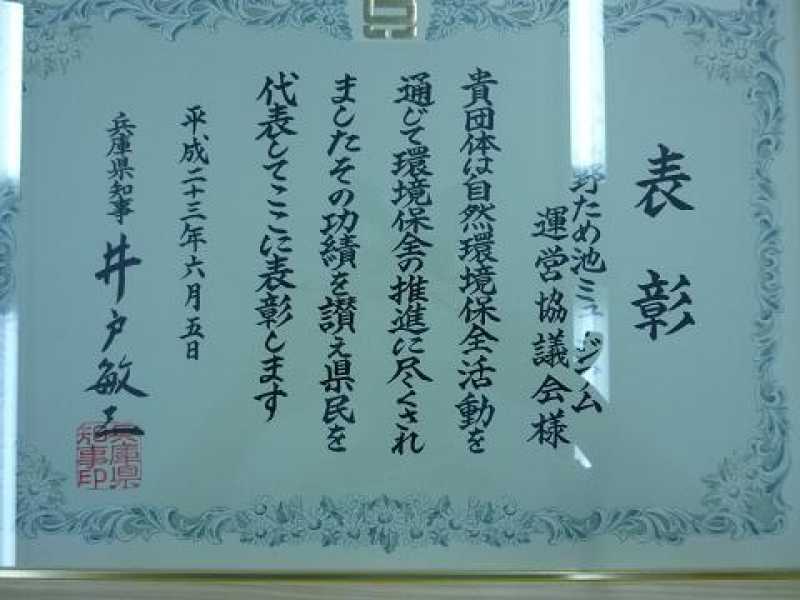 表彰
野ため池ミュージアム
運営協議会様
貴団体は自然環境保全活動を
通じて環境保全の推進に尽くされ
ましたその功績を讃え県民を
代表してここに表彰します
平成二十三年六月五日
兵庫県知事 井戸敏三
兵庫県
知事印